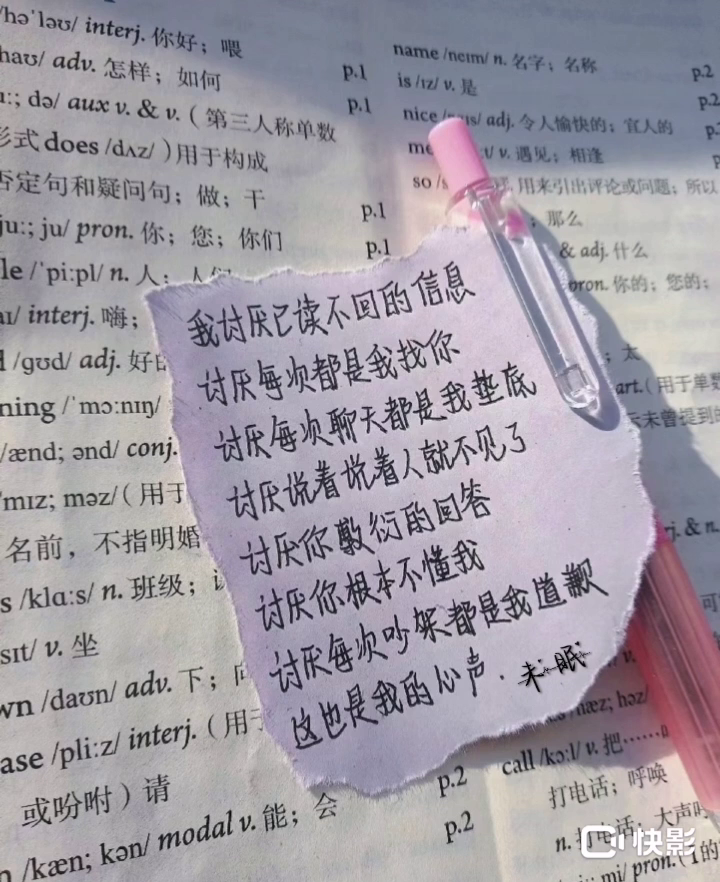 /hə'ləʊ/ interj. 你好；喂
haʊ/ adv. 怎样；如何 p.1
ː; də/ aux v. & v.（第三人称单数 p.1
形式 does /dʌz/ ) 用于构成
否定句和疑问句；做；干 p.1
juː; ju/ pron. 你；您；你们 p.1
le /'piːpl/ n. 人；人们
aɪ/ interj. 嗨；
/ɡʊd/ adj. 好的
ning /'mɔːnɪŋ/
/ænd; ənd/ conj.
'mɪz; məz/（用于
名前，不指明婚
s /klɑːs/ n. 班级；
sɪt/ v. 坐
wn /daʊn/ adv. 下；向
ase /pliːz/ interj.（用于
或吩咐）请 p.2
/kæn; kən/ modal v. 能；会 p.2
name /neɪm/ n. 名字；名称 p.2
is /ɪz/ v. 是 p.2
nice adj. 令人愉快的；宜人的
v. 遇见；相逢
so 用来引出评论或问题；所以
，那么
& adj. 什么
pron. 你的；您的；
；太
art.（用于单数
未曾提到的
我讨厌已读不回的信息
讨厌每次都是我找你
讨厌每次聊天都是我垫底
讨厌说着说着人就不见了
讨厌你敷衍的回答
讨厌你根本不懂我
讨厌每次吵架都是我道歉
这也是我的心声.
未眠
j. & n.
hæz; həz/
call /kɔːl/ v. 把……
打电话；呼唤
n. 打电话；大声
mi/ pron.
快影